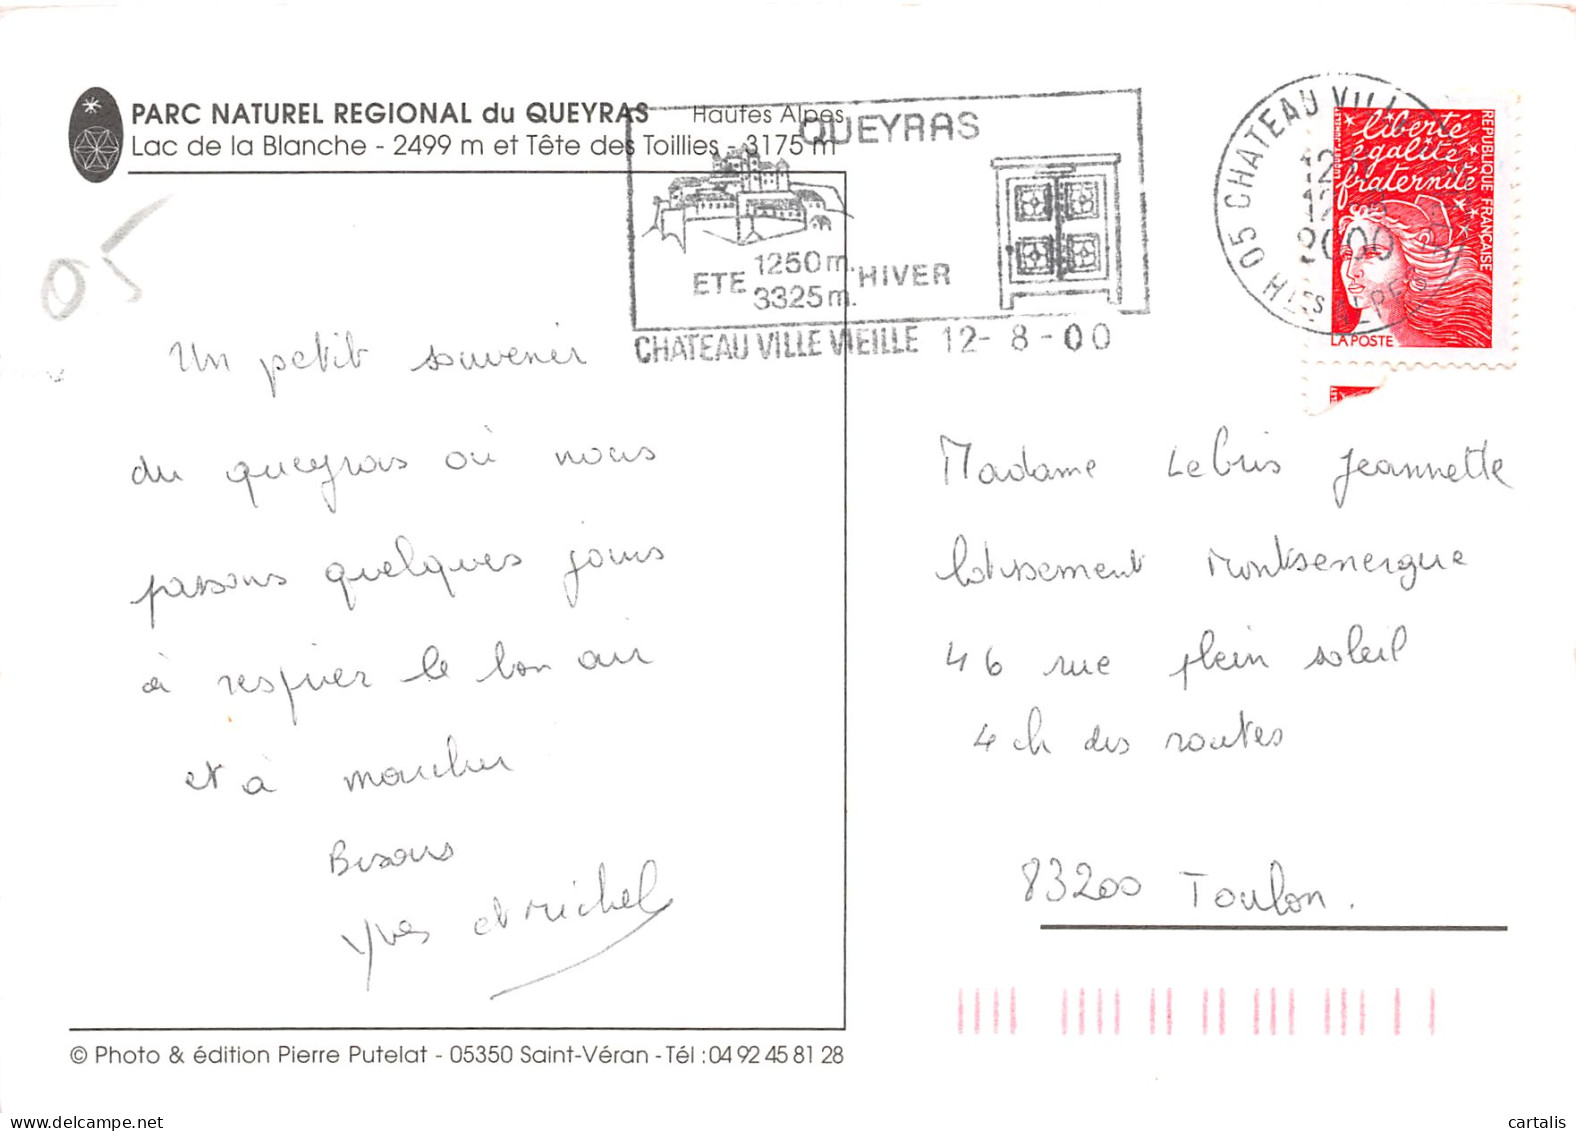 PARC NATUREL REGIONAL du QUEYRAS Hautes Alpes
Lac de la Blanche - 2499 m et Tête des Toillies - 3175 m
05
QUEYRAS
ETE 1250m. HIVER
3325m.
CHATEAU VILLE VIEILLE 12-8-00
05 CHATEAU VILLE
12
12
2000
HTES ALPES
liberté
égalité
fraternité
REPUBLIQUE FRANÇAISE
LA POSTE
Un petit souvenir
du queyras où nous
passons quelques jours
à respirer le bon air
et à marcher
Bisous
Yves et Michel
Madame Lebris Jeannette
lotissement Montserergue
46 rue plein soleil
4 ch des routes
83200 Toulon.
© Photo & édition Pierre Putelat - 05350 Saint-Véran - Tél : 04 92 45 81 28
cartalis